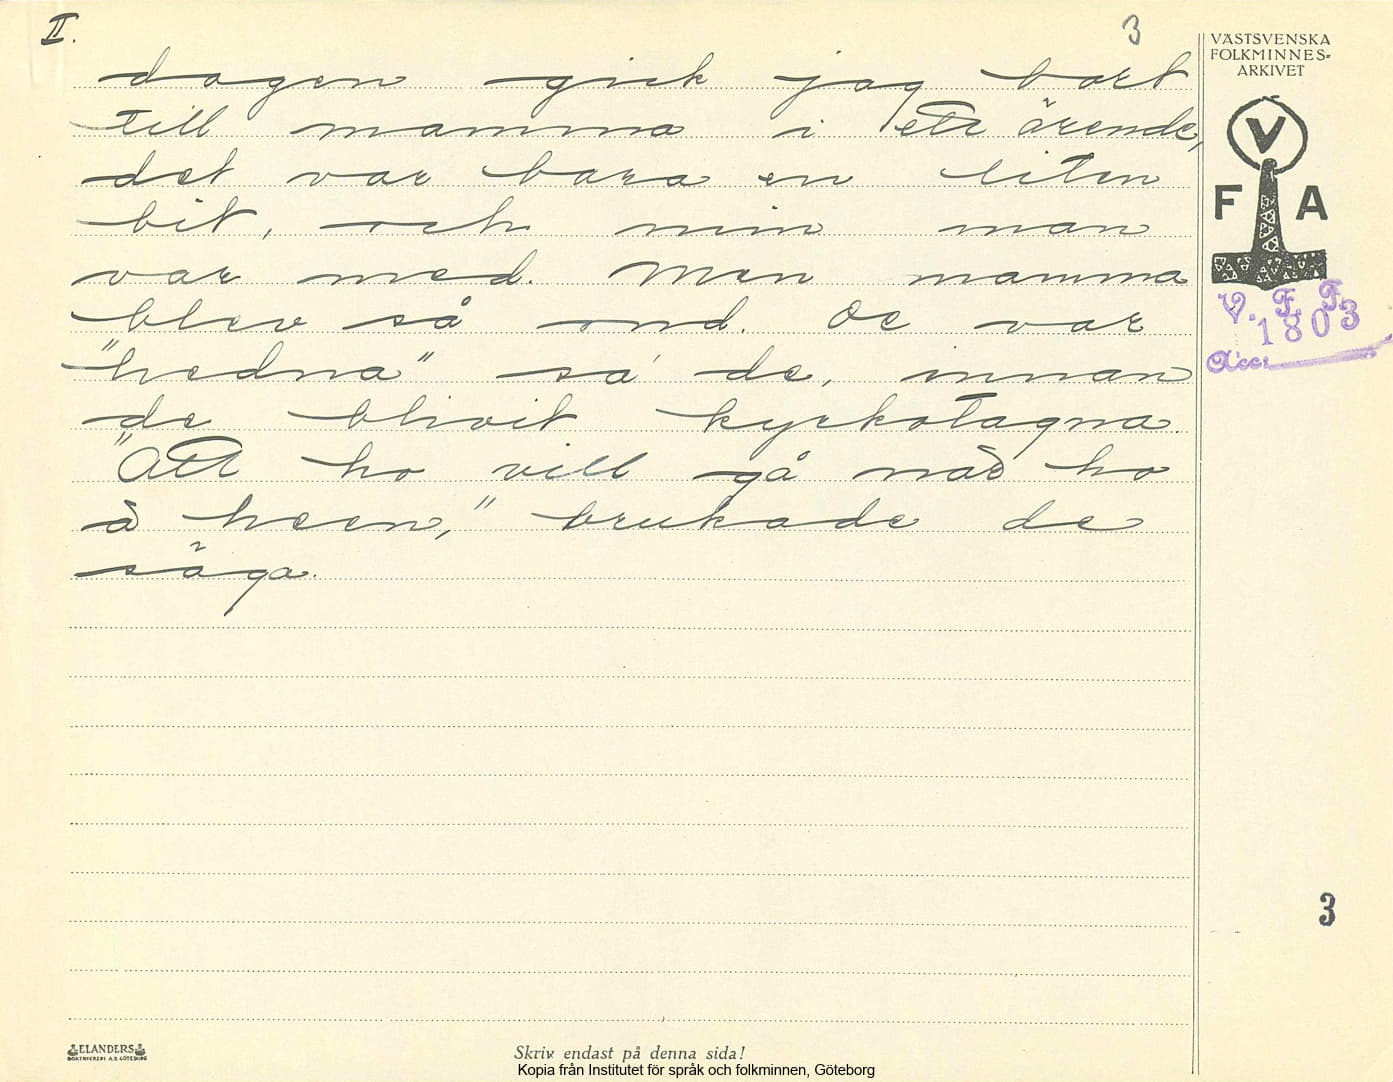 II.
3
VÄSTSVENSKA
FOLKMINNES-
ARKIVET
V
F A
V. F. F.
1803
Acc.
dagen gick jag bort
till mamma i ett ärende,
det var bara en liten
bit, och min man
var med. Men mamma
blev så ond. De var
"hedna" sa de, innan
de blivit kyrkotagna.
"Att ho vill gå när ho
ä heen," brukade de
säga.
3
ELANDERS
BOKTRYCKERI A.B. GÖTEBORG
Skriv endast på denna sida!
Kopia från Institutet för språk och folkminnen, Göteborg